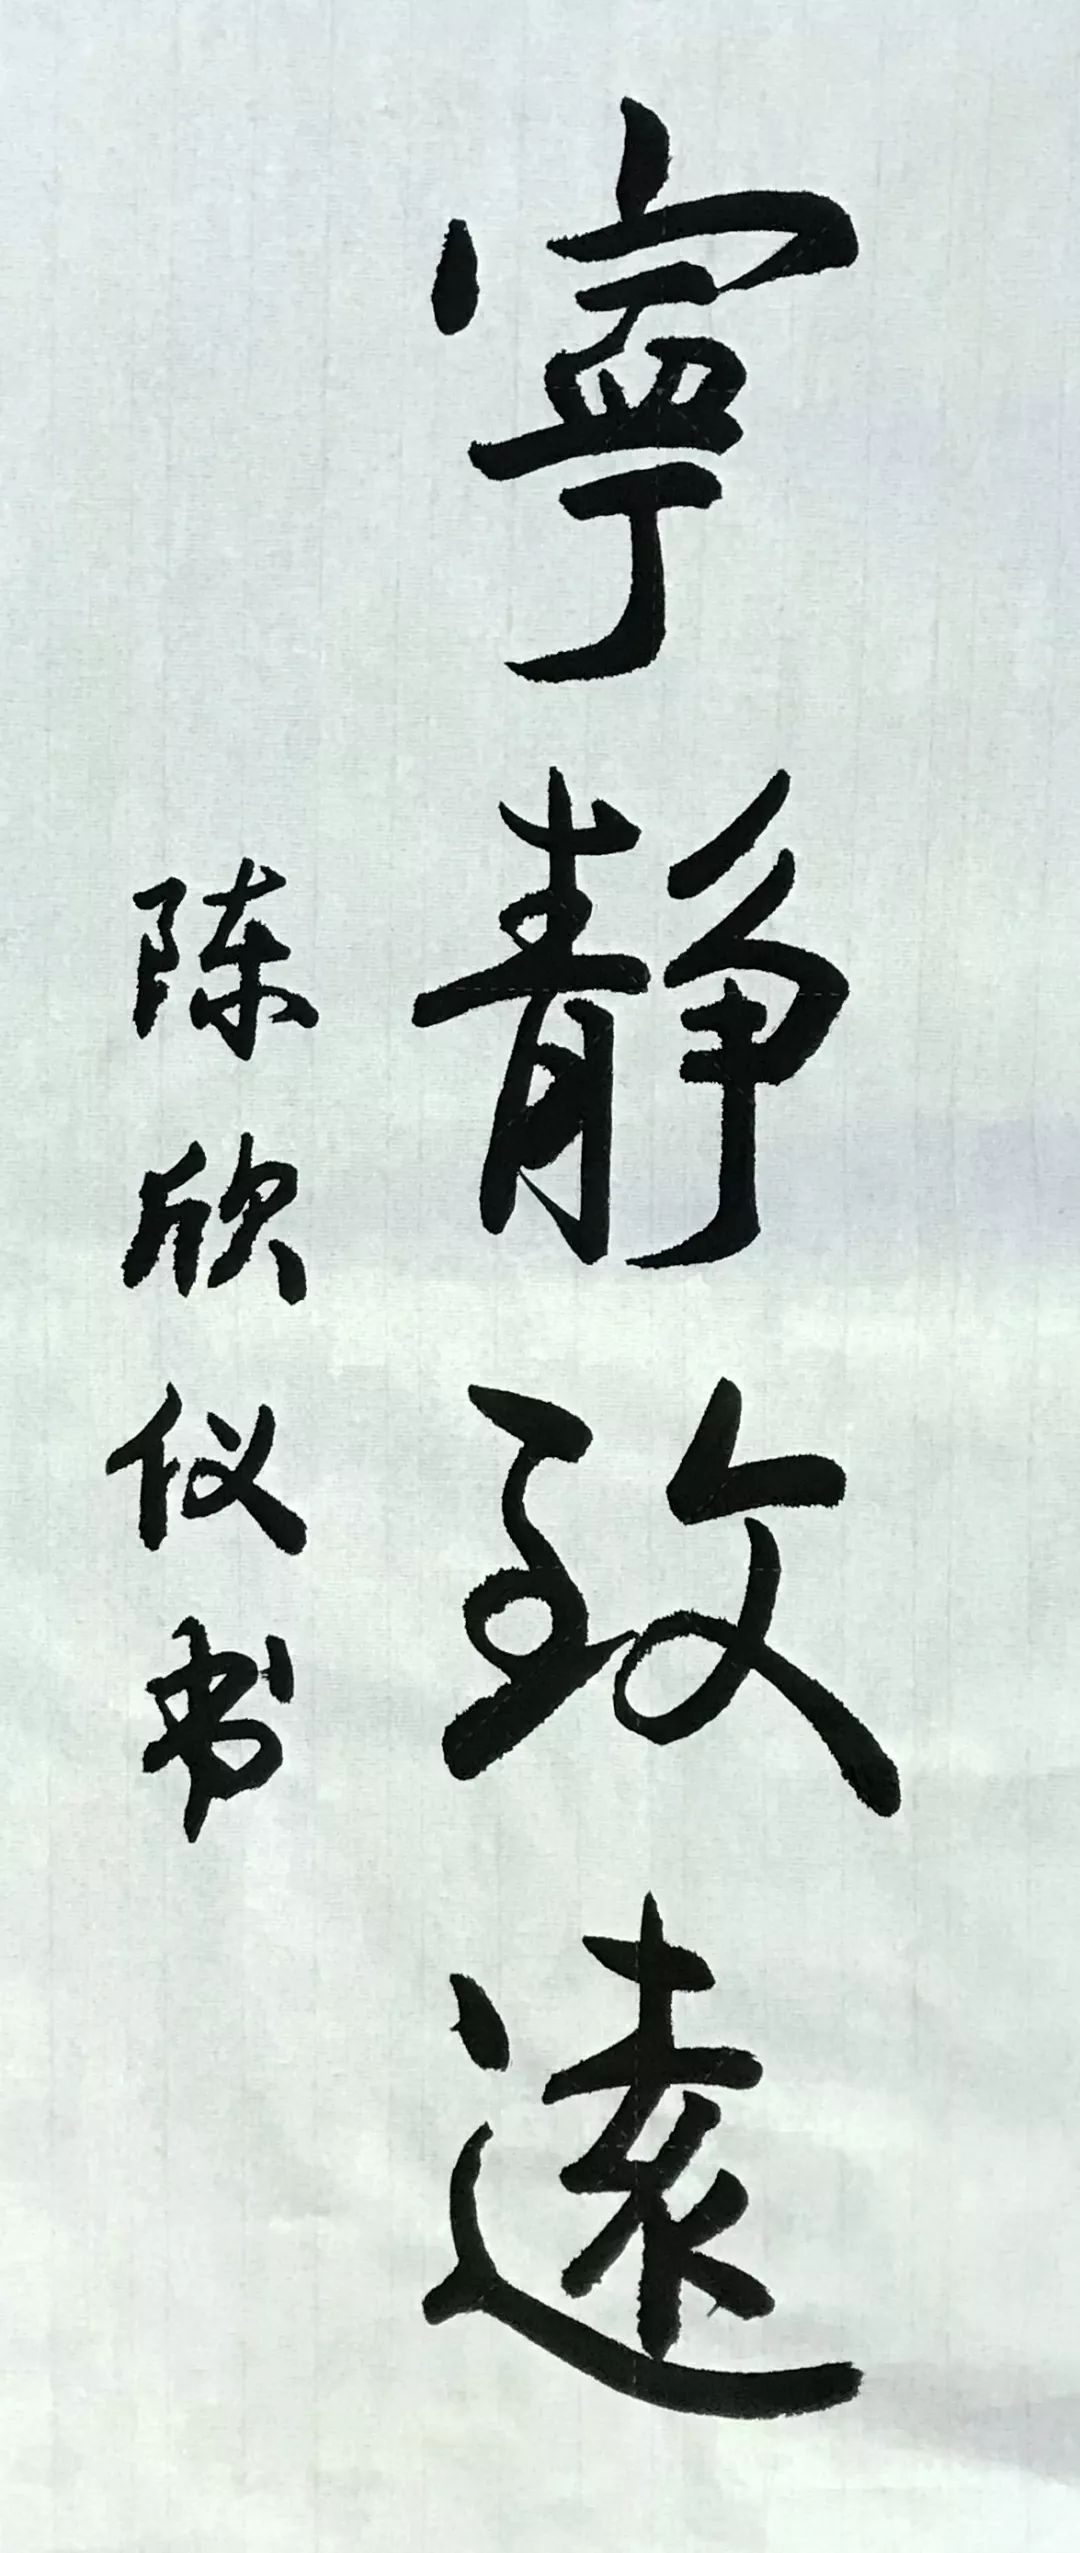 寧静致遠
陈欣仪书